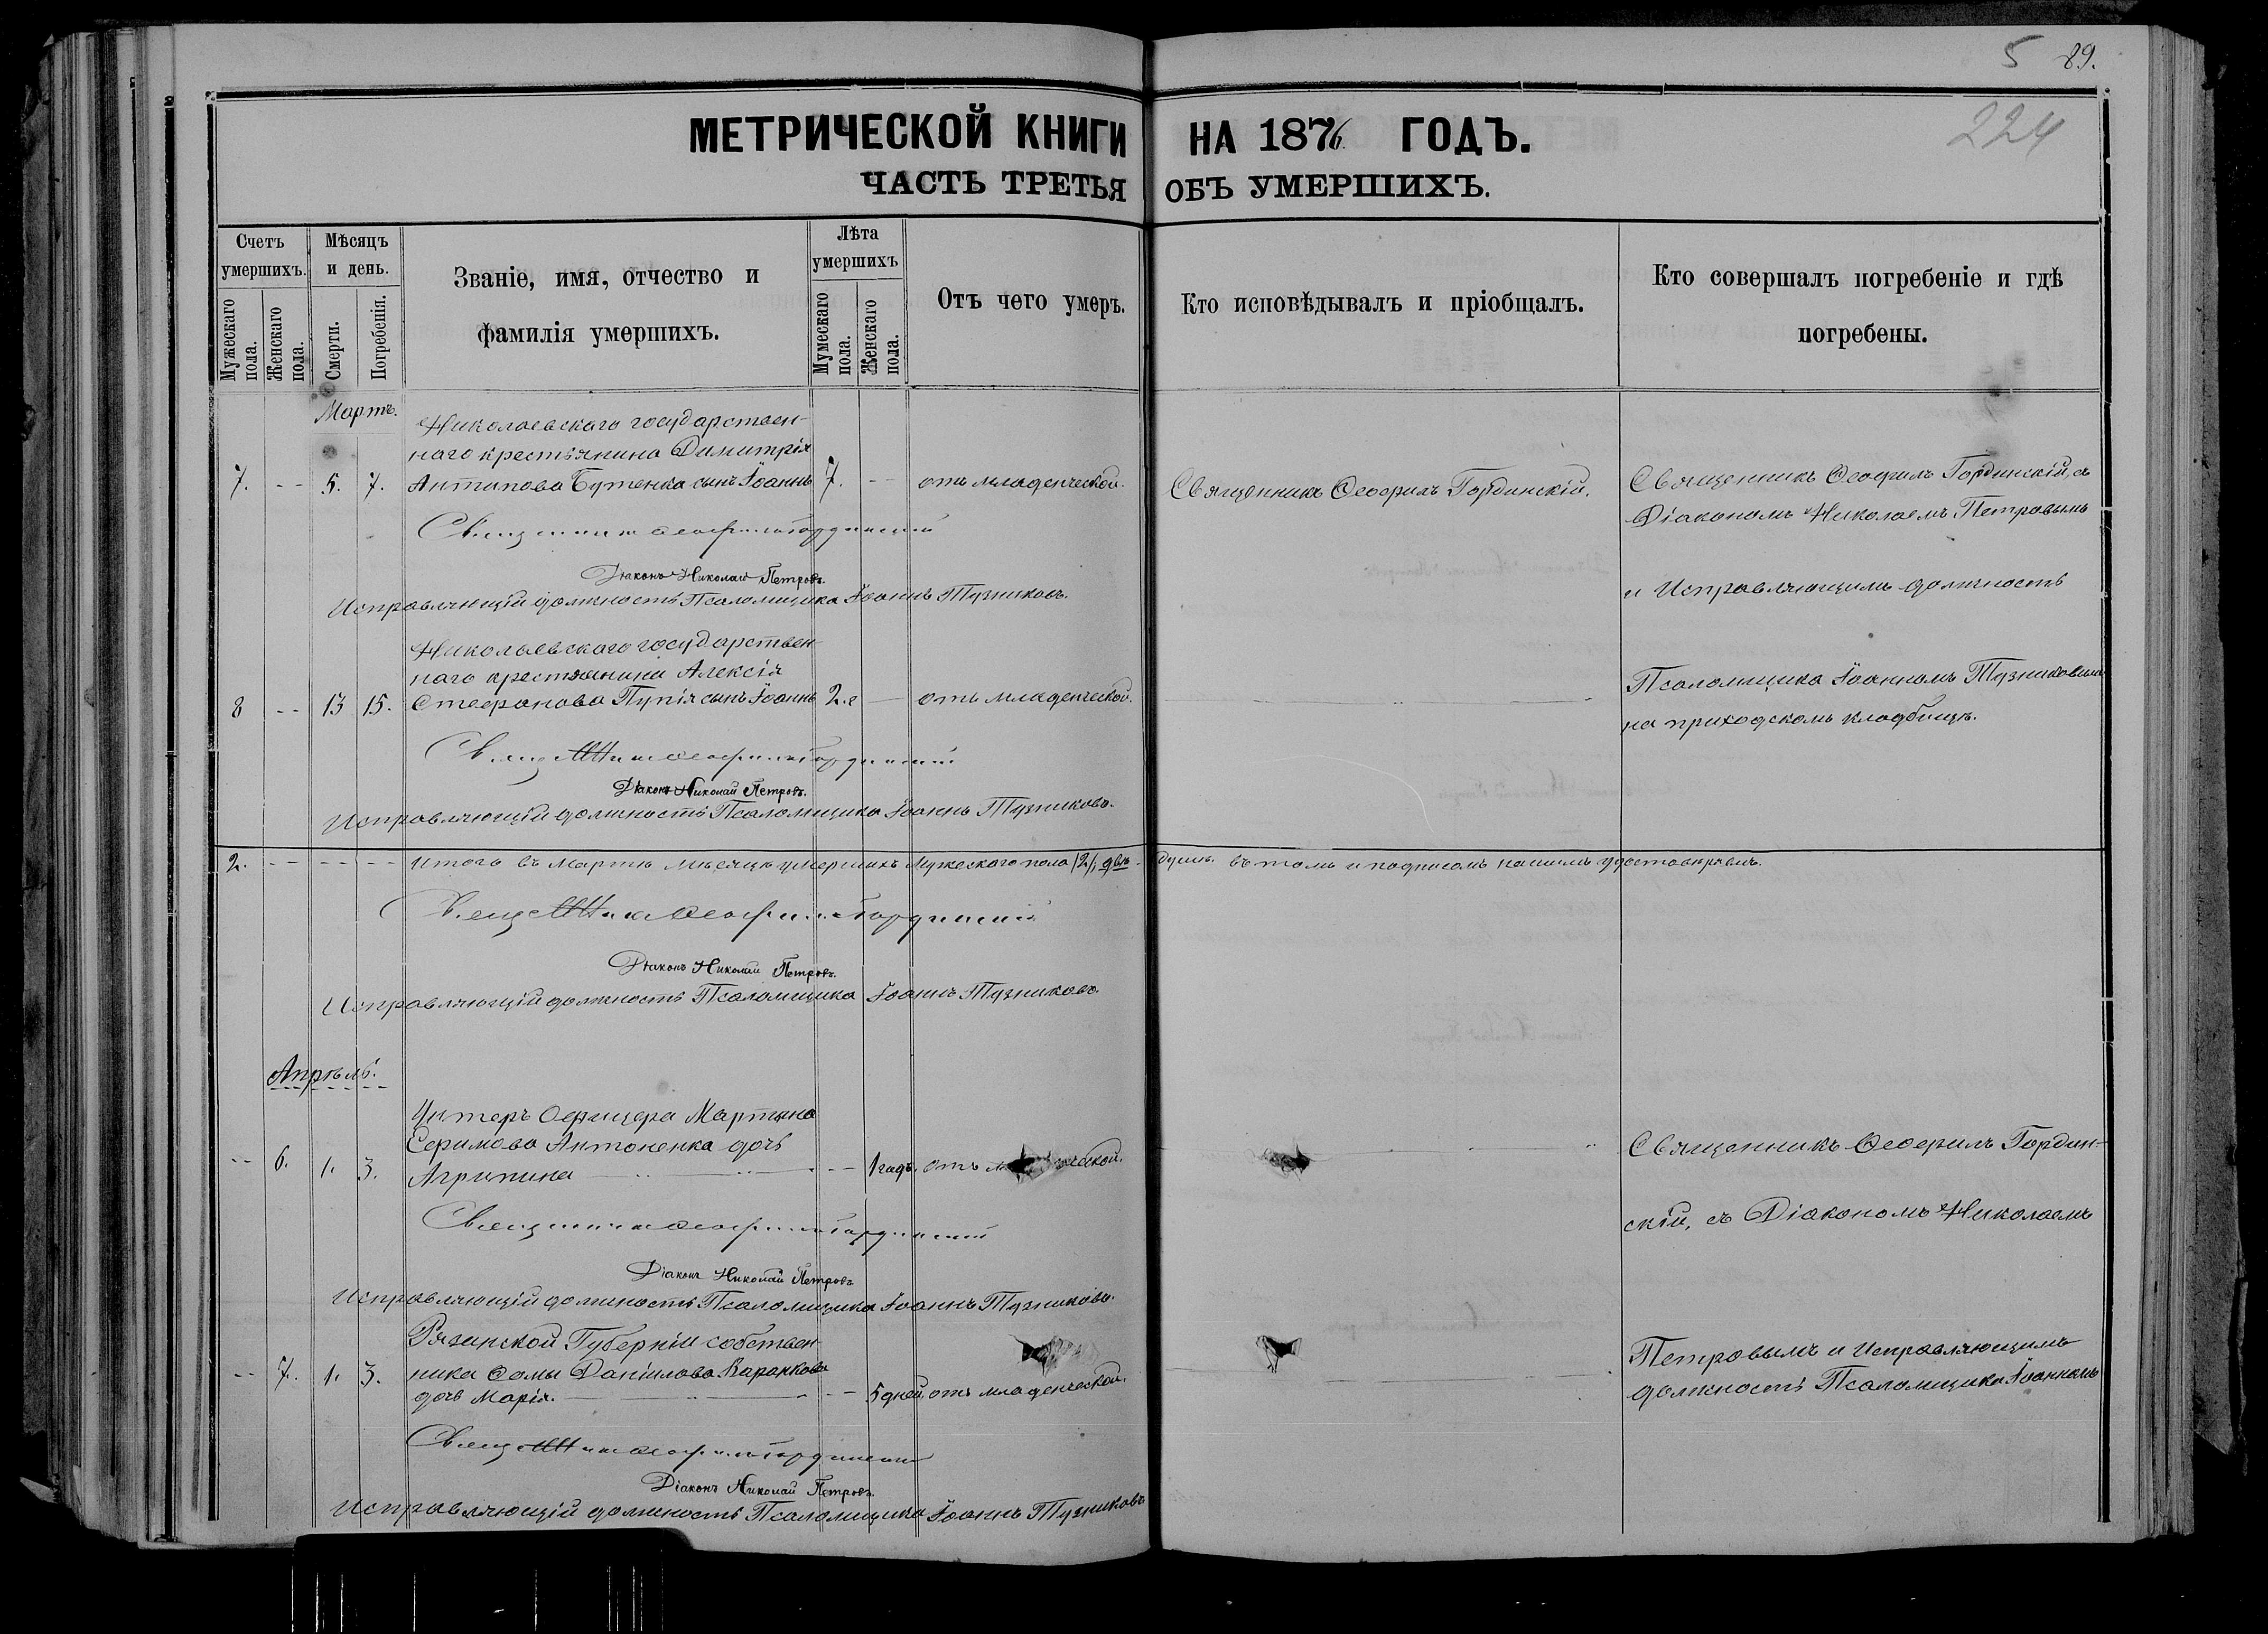 5 89.
224
МЕТРИЧЕСКОЙ КНИГИ НА 1876 ГОДЪ.
ЧАСТЬ ТРЕТЬЯ ОБЪ УМЕРШИХЪ.
Счетъ умершихъ.
Мужескаго пола.
Женскаго пола.
Мѣсяцъ и день.
Смерти.
Погребенія.
Званіе, имя, отчество и
фамилія умершихъ.
Лѣта умершихъ
Мужескаго пола.
Женскаго пола.
Отъ чего умеръ.
Кто исповѣдывалъ и пріобщалъ.
Кто совершалъ погребеніе и гдѣ
погребены.
Мартъ.
Николаевскаго государствен-
наго крестьянина Димитрія
7. -- 5. 7. Антипова Бутенка сынъ Іоаннъ 7. -- отъ младенческой. Священникъ Ѳеофилъ Гординскій.
Священникъ Ѳеофилъ Гординскій, съ
Діакономъ Николаемъ Петровымъ
и Исправляющимъ должность
Псаломщика Іоанномъ Тузниковымъ
на приходскомъ кладбищѣ.
Священникъ Ѳеофилъ Гординскій
Діаконъ Николай Петровъ.
Исправляющій должность Псаломщика Іоаннъ Тузниковъ.
Николаевскаго государствен-
наго крестьянина Алексія
8 -- 13 15. Стефанова Пупія сынъ Іоаннъ 2.г — отъ младенческой.
Священникъ Ѳеофилъ Гординскій
Діаконъ Николай Петровъ.
Исправляющій должность Псаломщика Іоаннъ Тузниковъ.
2. -- -- -- -- Итого въ Мартѣ мѣсяцѣ умершихъ мужескаго пола /2/, двѣ души. въ томъ и подписомъ нашимъ удостовѣряемъ.
Священникъ Ѳеофилъ Гординскій
Діаконъ Николай Петровъ.
Исправляющій должность Псаломщика Іоаннъ Тузниковъ.
Апрѣль.
Унтеръ Офицера Мартина
Ефимова Антоненка дочь
-- 6. 1. 3. Агрипина -- 1 годъ. отъ
Священникъ Ѳеофилъ Гордин-
скій, съ Діакономъ Николаемъ
Петровымъ и Исправляющимъ
должность Псаломщика Іоанномъ
Священникъ Ѳеофилъ Гординскій
Діаконъ Николай Петровъ
Исправляющій должность Псаломщика Іоаннъ Тузниковъ.
Рязанской Губерніи собствен-
-- 7. 1. 3. ника Ѳомы Даніилова
дочь Марія. -- 5 дней. отъ младенческой.
Священникъ Ѳеофилъ Гординскій
Діаконъ Николай Петровъ.
Исправляющій должность Псаломщика Іоаннъ Тузниковъ